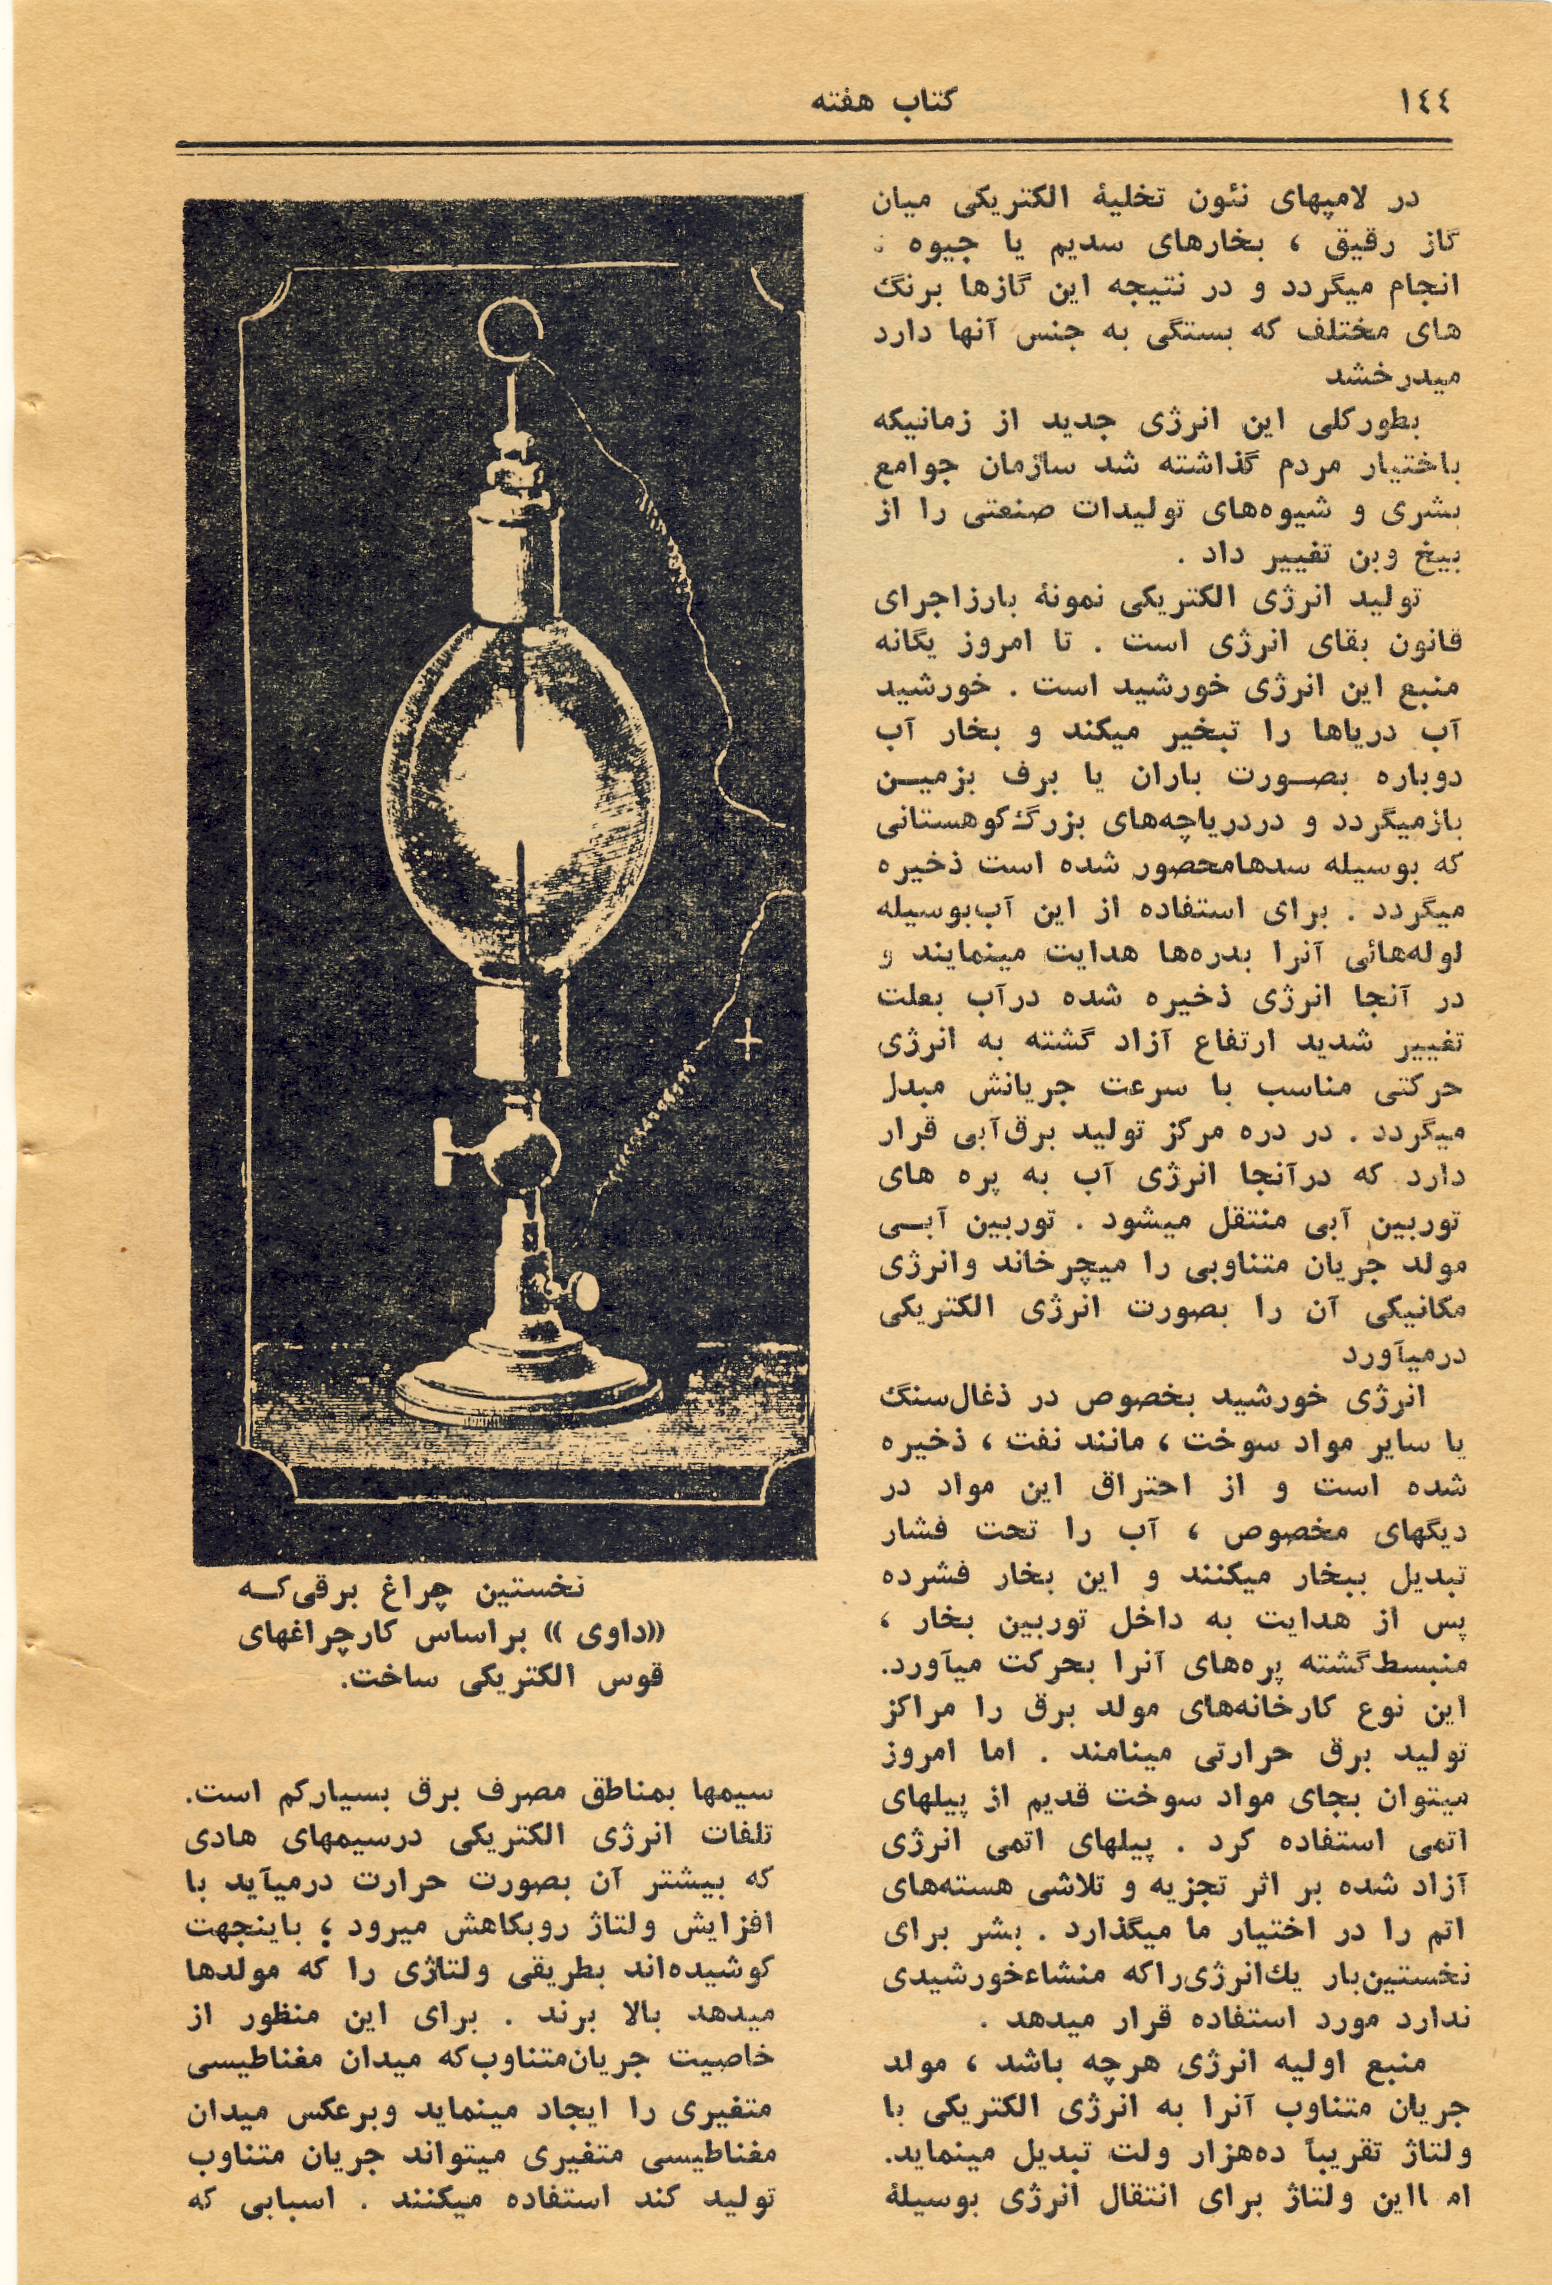 ١٤٤
کتاب هفته
در لامپهای نئون تخلیهٔ الکتریکی میان
گاز رقیق ، بخارهای سدیم یا جیوه
انجام میگردد و در نتیجه این گازها برنگ
های مختلف که بستگی به جنس آنها دارد
میدرخشد
بطورکلی این انرژی جدید از زمانیکه
باختیار مردم گذاشته شد سازمان جوامع
بشری و شیوه‌های تولیدات صنعتی را از
بیخ وبن تغییر داد .
تولید انرژی الکتریکی نمونهٔ بارزاجرای
قانون بقای انرژی است . تا امروز یگانه
منبع این انرژی خورشید است . خورشید
آب دریاها را تبخیر میکند و بخار آب
دوباره بصورت باران یا برف بزمین
بازمیگردد و دردریاچه‌های بزرگ کوهستانی
که بوسیله سدهامحصور شده است ذخیره
میگردد . برای استفاده از این آب‌بوسیله
لوله‌هائی آنرا بدره‌ها هدایت مینمایند و
در آنجا انرژی ذخیره شده درآب بعلت
تغییر شدید ارتفاع آزاد گشته به انرژی
حرکتی مناسب با سرعت جریانش مبدل
میگردد . در دره مرکز تولید برق‌آبی قرار
دارد که درآنجا انرژی آب به پره های
توربین آبی منتقل میشود . توربین آبی
مولد جریان متناوبی را میچرخاند وانرژی
مکانیکی آن را بصورت انرژی الکتریکی
درمیآورد
انرژی خورشید بخصوص در ذغال‌سنگ
یا سایر مواد سوخت ، مانند نفت ، ذخیره
شده است و از احتراق این مواد در
دیگهای مخصوص ، آب را تحت فشار
تبدیل ببخار میکنند و این بخار فشرده
پس از هدایت به داخل توربین بخار ،
منبسط‌گشته پره‌های آنرا بحرکت میآورد.
این نوع کارخانه‌های مولد برق را مراکز
تولید برق حرارتی مینامند . اما امروز
میتوان بجای مواد سوخت قدیم از پیلهای
اتمی استفاده کرد . پیلهای اتمی انرژی
آزاد شده بر اثر تجزیه و تلاشی هسته‌های
اتم را در اختیار ما میگذارد . بشر برای
نخستین‌بار یك‌انرژی‌راکه منشاءخورشیدی
ندارد مورد استفاده قرار میدهد .
منبع اولیه انرژی هرچه باشد ، مولد
جریان متناوب آنرا به انرژی الکتریکی با
ولتاژ تقریباً ده‌هزار ولت تبدیل مینماید.
ام ااین ولتاژ برای انتقال انرژی بوسیلهٔ
نخستین چراغ برقی‌که
«داوی » براساس کارچراغهای
قوس الکتریکی ساخت.
سیمها بمناطق مصرف برق بسیارکم است.
تلفات انرژی الکتریکی درسیمهای هادی
که بیشتر آن بصورت حرارت درمیآید با
افزایش ولتاژ روبکاهش میرود ؛ باینجهت
کوشیده‌اند بطریقی ولتاژی را که مولدها
میدهد بالا برند . برای این منظور از
خاصیت جریان‌متناوب‌که میدان مغناطیسی
متغیری را ایجاد مینماید وبرعکس میدان
مغناطیسی متغیری میتواند جریان متناوب
تولید کند استفاده میکنند . اسبابی که